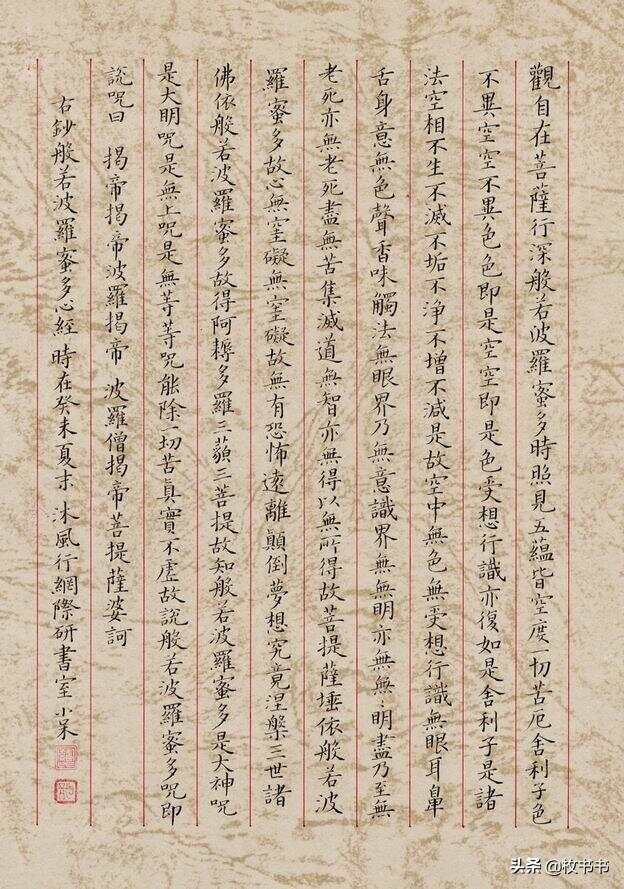 觀自在菩薩行深般若波羅蜜多時照見五蘊皆空度一切苦厄舍利子色
不異空空不異色色即是空空即是色受想行識亦復如是舍利子是諸
法空相不生不滅不垢不淨不增不減是故空中無色無受想行識無眼耳鼻
舌身意無色聲香味觸法無眼界乃無意識界無無明亦無無〻明盡乃至無
老死亦無老死盡無苦集滅道無智亦無得以無所得故菩提薩埵依般若波
羅蜜多故心無罣礙無罣礙故無有恐怖遠離顛倒夢想究竟涅槃三世諸
佛依般若波羅蜜多故得阿耨多羅三藐三菩提故知般若波羅蜜多是大神咒
是大明咒是無上咒是無等等咒能除一切苦真實不虛故說般若波羅蜜多咒即
說咒曰 揭帝揭帝波羅揭帝 波羅僧揭帝菩提薩婆訶
右鈔般若波羅蜜多心經 時在癸未夏末 沐風行網際研書室 小呆
头条 @枚书书